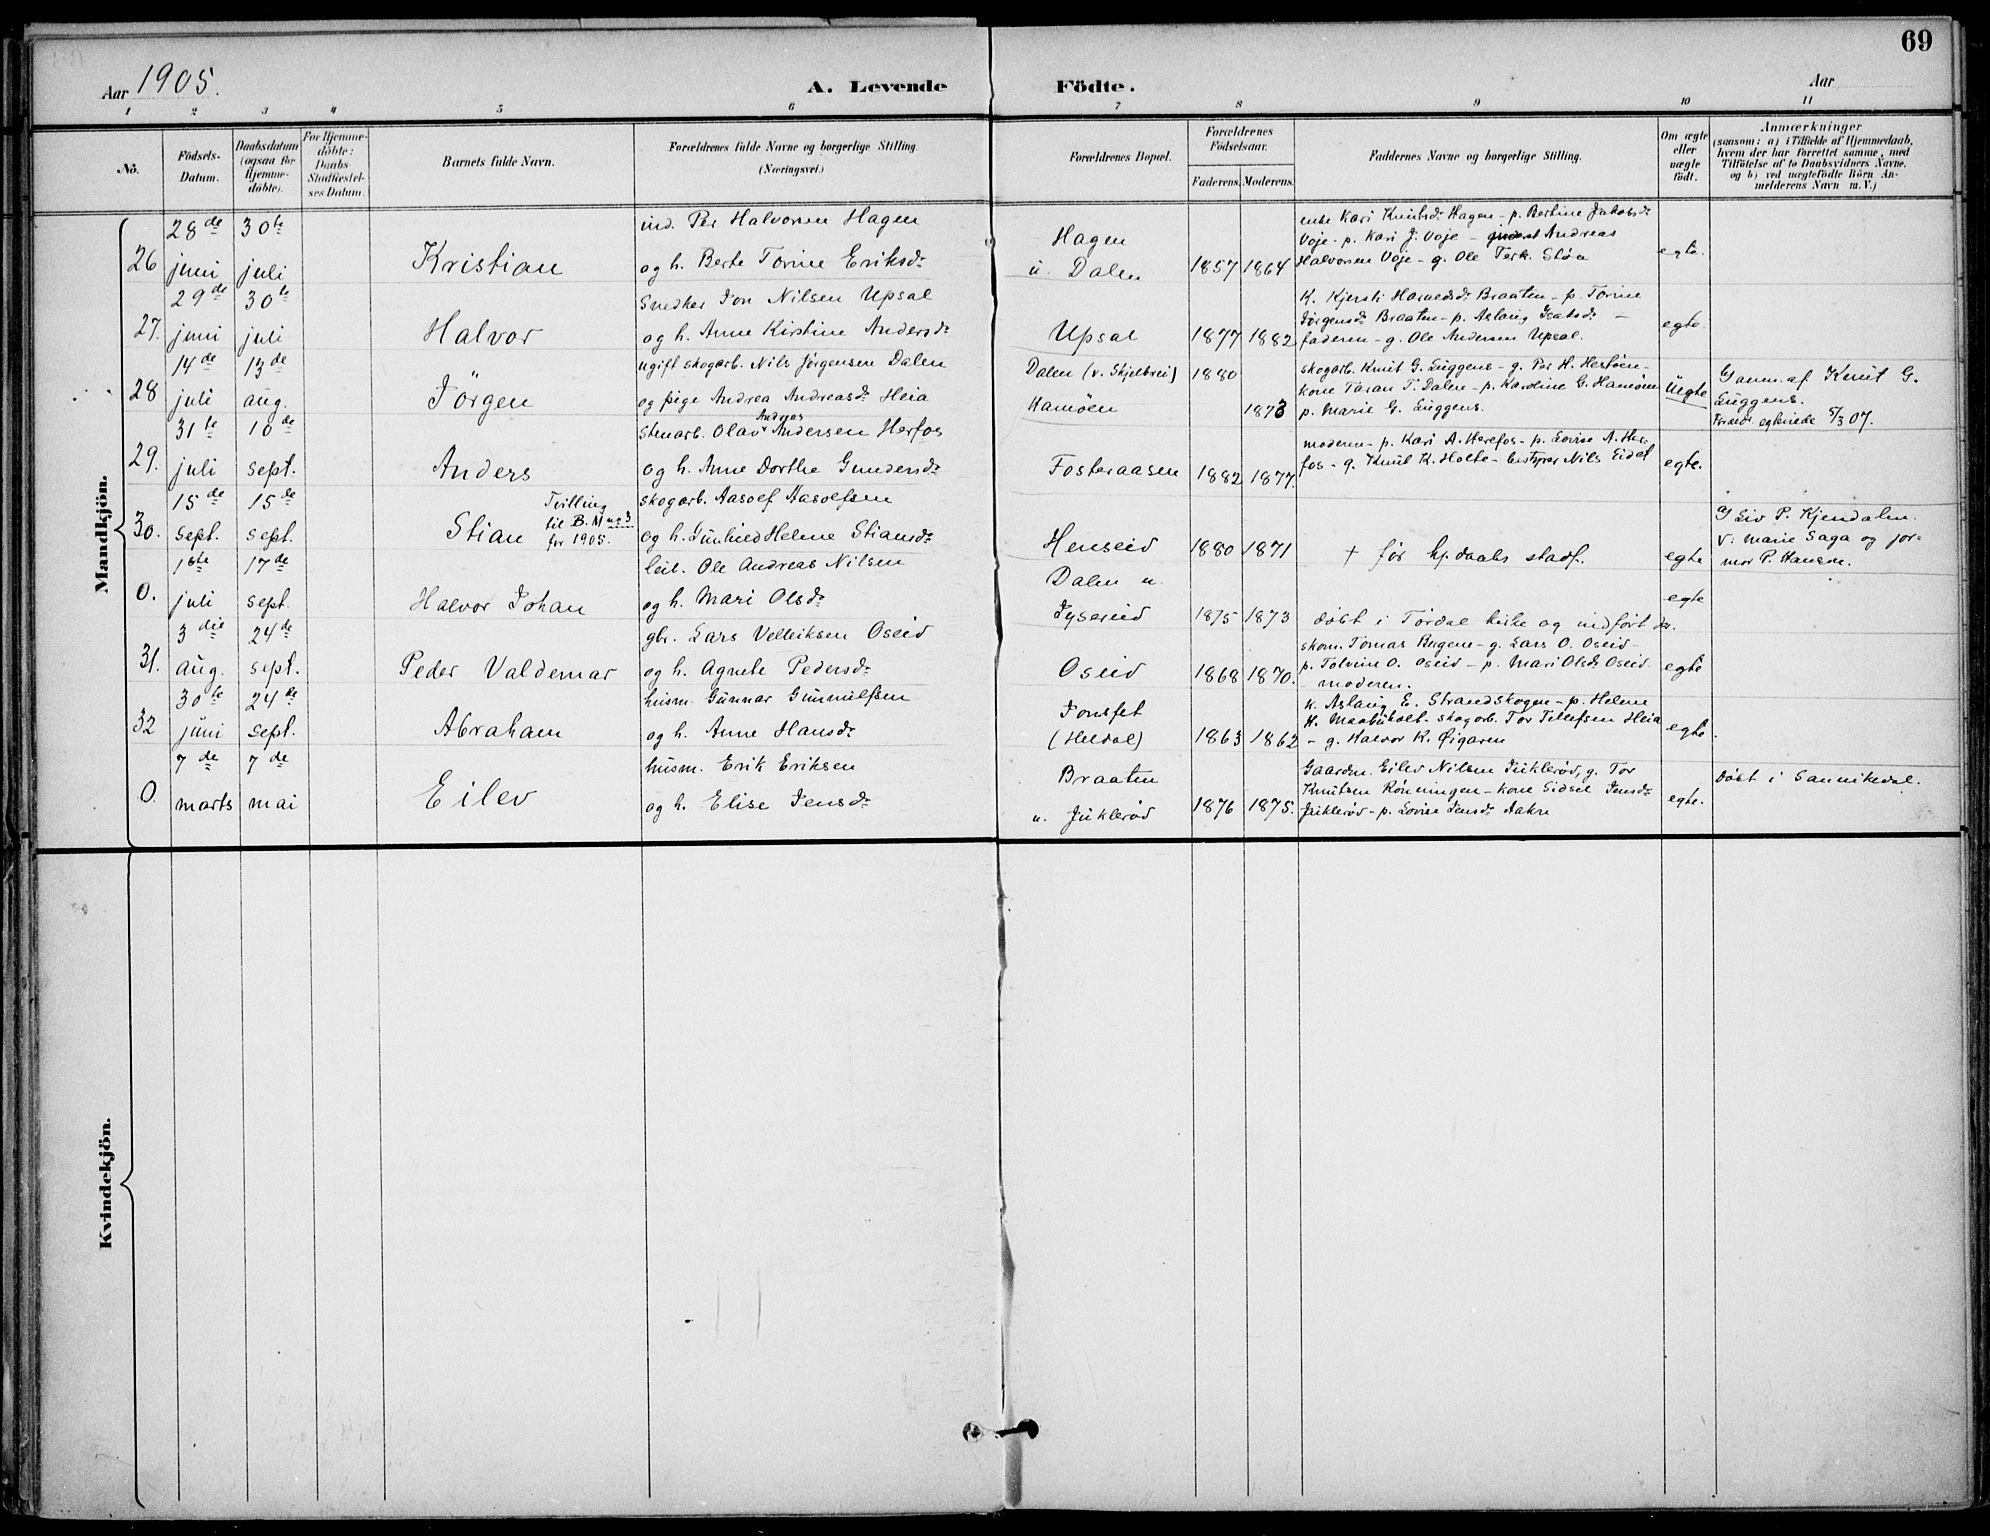 69
Aar 1905.
A. Levende Födte.
Aar
1 2 3 4 5 6 7 8 9 10 11
No.
Födsels-Datum.
Daabsdatum (ogsaa for Hjemme-döbte).
For Hjemme-döbte: Daabs-Stadfæstel-ses Datum.
Barnets fulde Navn.
Forældrenes fulde Navne og borgerlige Stilling. (Næringsvei.)
Forældrenes Bopæl.
Forældrenes Födselsaar.
Faderens. Moderens.
Faddernes Navne og borgerlige Stilling.
Om ægte eller uægte födt.
Anmærkninger
(saasom: a) i Tilfælde af Hjemmedaab,
hvem der har forrettet samme, med
Tilföielse af to Daabsvidners Navne,
og b) ved uægtefödte Börn An-
melderens Navn m. V.)
Mandkjön.
26 28de juni 30te juli
Kristian
ind. Per Halvorsen Hagen
og h. Berte Torine Eriksdr
Hagen
u. Dalen
1857 1864
enke Kari Knutsdr Hagen - p. Bertine Jakobsdr
Voje - p. Kari J. Voje - Andreas
Halvorsen Voje - g. Ole Terk. Stöa
egte.
27. 29de juni 30te juli
Halvor
Snedker Jon Nilsen Upsal
og h. Anne Kirstine Andersdr
Upsal
1877 1882
K. Kjersti Braaten - p. Torine
Jörgensdr Braaten - p. Aslaug -
faderen - g. Ole Andersen Upsal.
egte.
28 14de juli 13de aug.
Jörgen
ugift skogarb. Nils Jörgensen Dalen
og pige Andrea Andreasdr Heia
Dalen (v. Skjelbrei)
Hamöen
1880
1873
skogarb. Knut G. Luggens - g. Per H. Hestöen -
kone Taran T. Dalen - p. Karoline G. Hamöen
p. Marie G. Luggens.
Uegte
anm. af Knut G.
Luggens.
Foræld. egteviede 5/3 07.
29. 31te juli 10de sept.
Anders
Andreas
Stenarb. Olav Andersen Herfos
og h. Anne Dorthe Gundersdr
Fosteraasen
1882 1877.
moderen - p. Kari A. Herefos - p. Lovise A. Her-
fos - g. Knut K. Holte - bestyrer Nils Eidet
egte.
30. 15de sept. 15de sept.
Stian
Tvilling
til B. M no 3
for 1905.
skogarb. Aasolf Aasolfsen
og h. Gunhild Helene Stiansdr
Henseid
1880 1871
+ før hj. daabs stadf.
egte
Liv P. Kjendalen.
V: Marie Saga og jor-
mor P. Hansen.
0. 16te juli 17de sept.
Halvor Johan
leil. Ole Andreas Nilsen
og h. Mari Olsdr
Dalen u.
1875 1873
döbt i Tördal kirke og indfört der.
egte
31. 3die aug. 24de sept.
Peder Valdemar
gbr. Lars Velleiksen Oseid
og h. Agnete Pedersdr
Oseid
1868 1870.
skom. Tomas Bugene - g. Lars O. Oseid -
p. Tolvine O. Oseid - p. Mari Olsdr Oseid
- moderen.
egte
32 30te juni 24de sept.
Abraham
husm. Gunnar Gunnulfsen
og h. Anne Hansdr
Tonsfet
(Heldal)
1863 1862
k. Aslaug E. Strandskogen - p. Helene
H. - skogarb. Tor Tellefsen Heia
- g. Halvor K. Øigaren
egte
0. 7de marts 7de mai
Eilev
husm. Erik Eriksen
og h. Elise Jensdr
Braaten
u. Juklerød
1876 1875.
Gaardm. Eilev Nilsen Juklerød, g. Tor
Knutsen Rønningen - kone Sidsel Jensdr
Juklerød - p. Lovise Jensdr Aakre
egte.
Döbt i Sannikedal.
Kvindekjön.